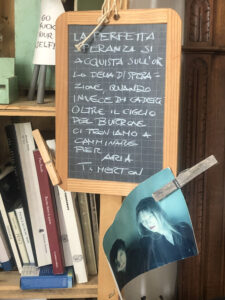 GO
FUCK
YOUR
SELFIE
LA PERFETTA
SPERANZA SI
ACQUISTA SULL'OR
LO DELLA DISPERA-
ZIONE, QUANDO
INVECE DI CADERE
OLTRE IL CIGLIO
DEL BURRONE
CI TROVIAMO A
CAMMINARE
PER ARIA
T. MERTON